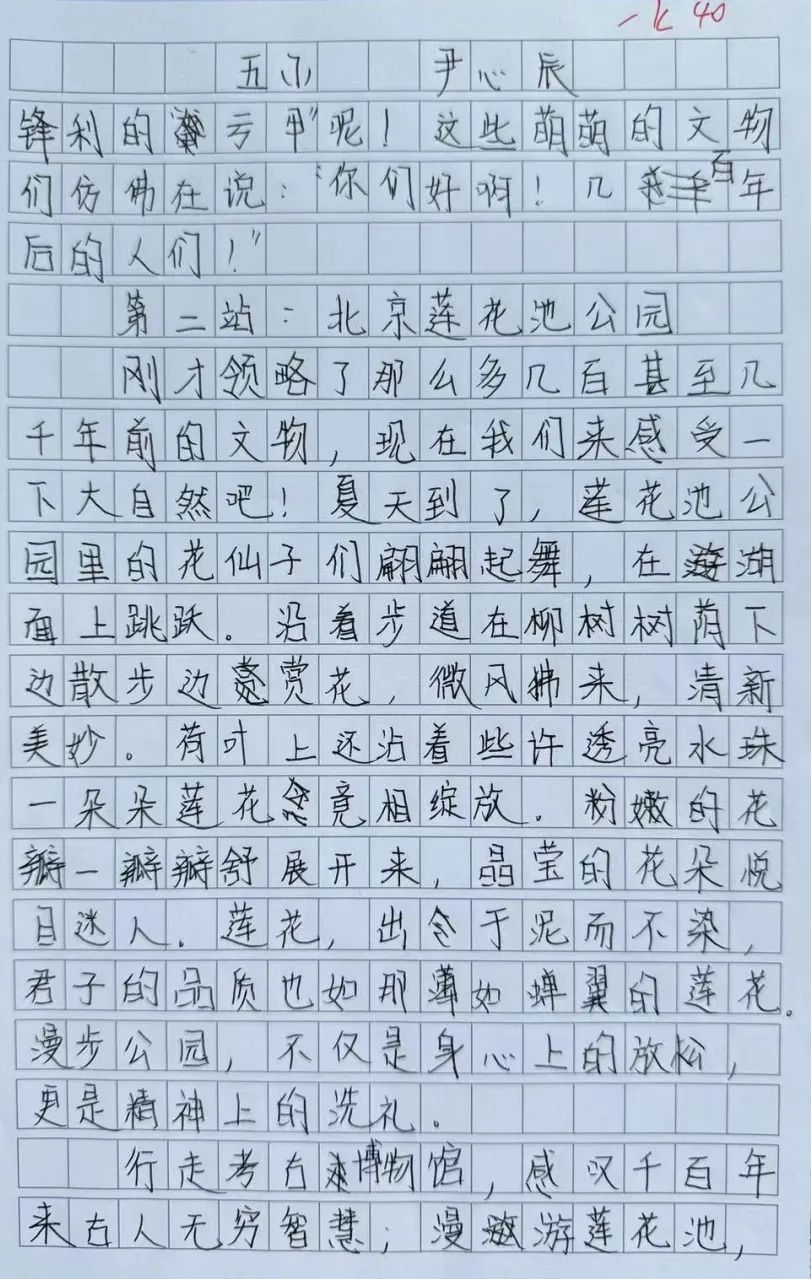 一长40
五小 尹心辰
锋利的亏甲”呢！这些萌萌的文物
们仿佛在说：“你们好啊！几百年
后的人们！”
第二站：北京莲花池公园
刚才领略了那么多几百甚至几
千年前的文物，现在我们来感受一
下大自然吧！夏天到了，莲花池公
园里的花仙子们翩翩起舞，在湖
面上跳跃。沿着步道在柳树树荫下
边散步边赏花，微风拂来，清新
美妙。荷叶上还沾着些许透亮水珠
一朵朵莲花竞相绽放。粉嫩的花
瓣一瓣瓣舒展开来，晶莹的花朵悦
目迷人。莲花，出于泥而不染，
君子的品质也如那薄如蝉翼的莲花。
漫步公园，不仅是身心上的放松，
更是精神上的洗礼。
行走考古博物馆，感叹千百年
来古人无穷智慧；漫游莲花池，